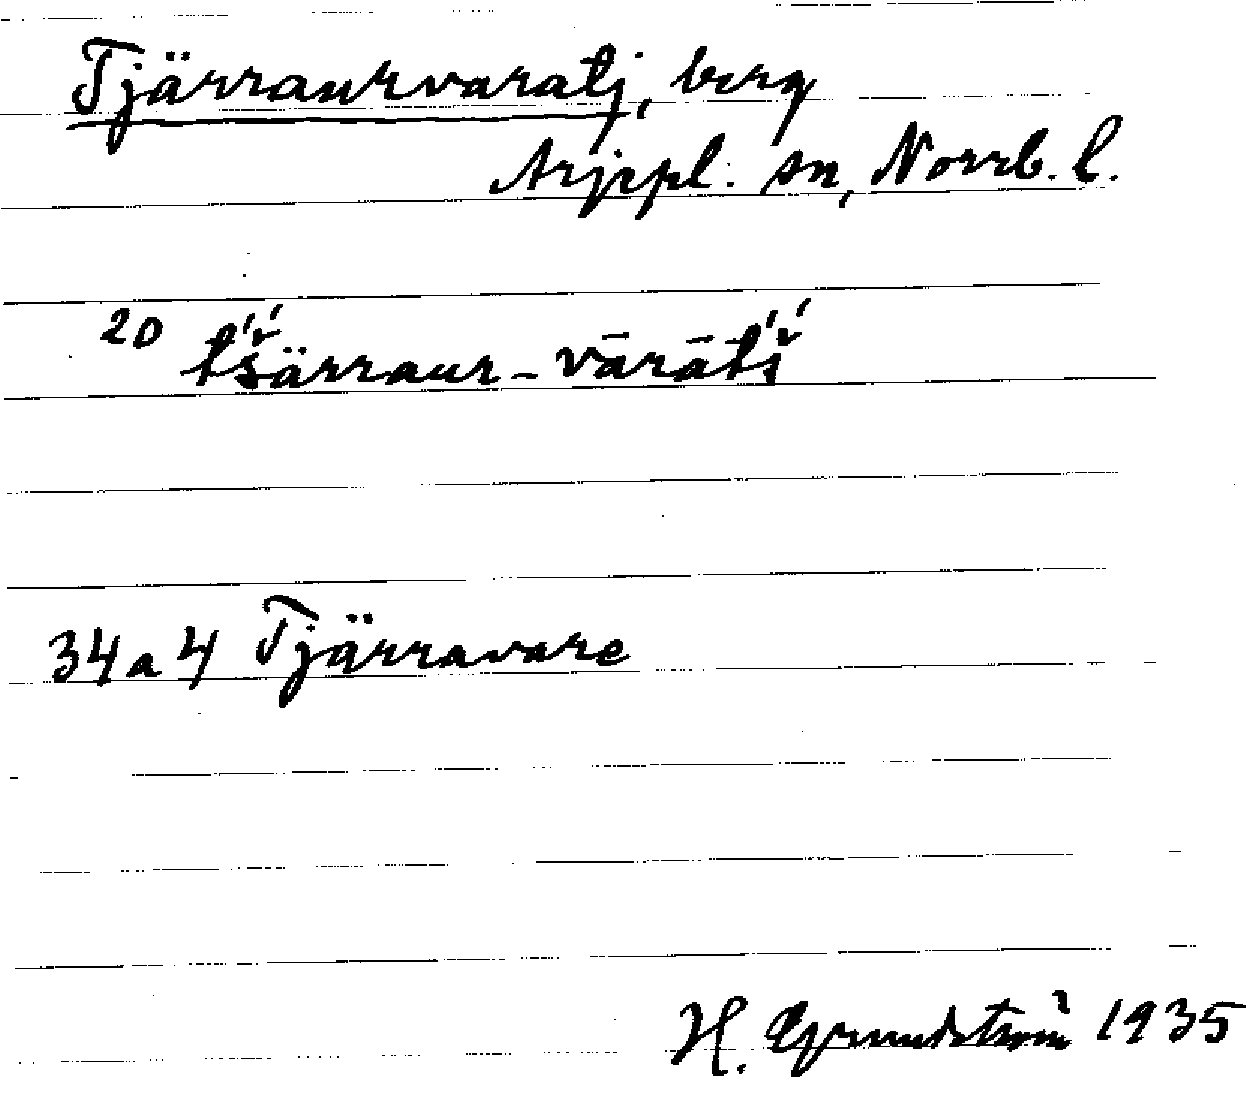 Tjärraurvaratj, berg
Arjepl. sn, Norrb. l.
20 t́š́ärraur-vārāt́š́
34a4 Tjärravare
H. Grundström 1935